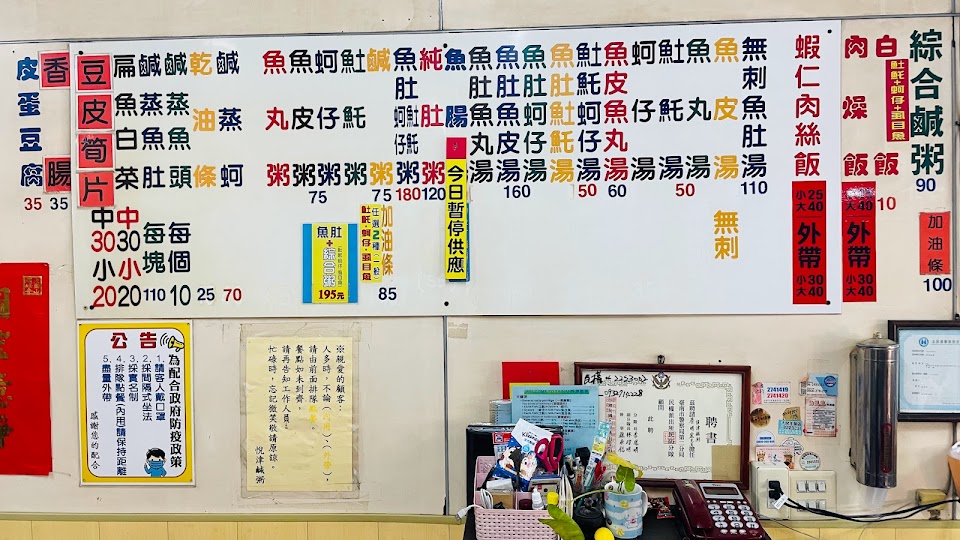 綜合鹹粥
90
肚魠+蚵仔+虱目魚
加油條
100
白飯
10
肉燥飯
外帶
小30
大40
蝦仁肉絲飯
小25
大40
外帶
小30
大40
無刺魚肚湯
110
魚皮湯
無刺
魚丸湯
50
肚魠湯
蚵仔湯
魚皮魚丸湯
60
肚魠蚵仔湯
50
魚肚肚魠湯
魚肚蚵仔湯
魚肚魚皮湯
160
魚肚魚丸湯
魚腸湯
今日暫停供應
純肚粥
120
魚肚蚵仔肚魠粥
180
鹹粥
75
加油條
任選2種(一般)
肚魠、蚵仔、虱目魚
85
肚魠粥
蚵仔粥
魚皮粥
75
魚丸粥
魚肚+綜合粥
195元
鹹蒸蚵
70
乾油條
25
鹹蒸魚頭
每個
10
鹹蒸魚肚
每塊
110
中30
小20
扁魚白菜
中30
小20
豆皮
筍片
香腸
35
皮蛋豆腐
35
公告
為配合政府防疫政策
1. 請客人戴口罩
2. 採間隔式坐法
3. 採實名制
4. 排隊點餐(內用請保持距離
5. 盡量外帶
感謝您的配合
※親愛的顧客:
人多時,不論
請由前面排隊
餐點如未到齊,
請再告知工作人員。
忙碌時,忘記微笑敬請原諒。
悅津鹹粥
聘書
此聘
顧問
2741419
2741420